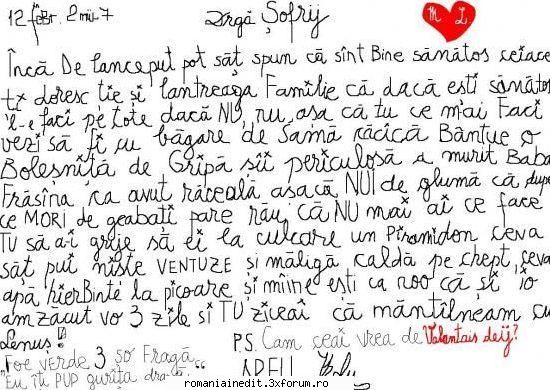 12 febr. 2 mii 7 Dragă Șofrij M L
Încă De lanceput pot săț spun că sînt Bine sănătos ceiace
ți doresc ție și lantreaga Familie că dacă ești sănătos
le faci pe tote dacă NU, nu, așa că tu ce mai Faci
vezi să fi cu băgare de Samă răcică Bântue o
Bolesniță de Gripă sii periculosă a murit Baba
Frăsina, ca avut răceală așacă NUI de glumă că dupe
ce MORI de geabați pare rău, că NU mai ai ce face
TU să a-i grije să ei la culcare un Piramidon ceva
săț pui niste VENTUZE și măligă caldă pe chept, ceva
apă hierBinte la picoare și mîine ești ca noo că și io
am zăcut vo 3 zile și TU ziceai că măntîlneam cu
Lenuș! P.S. Cam ceai vrea de Valantais deij?
Foe verde 3 so Fragă
Eu îți PUP gurița dragă ADELL
romaniainedit.3x.forum.ro